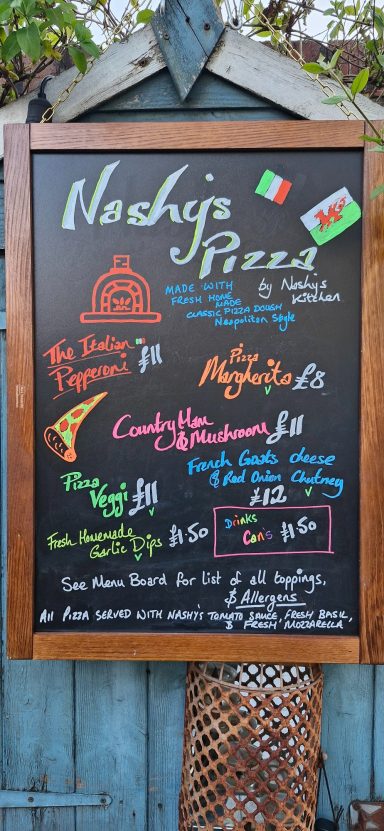 Nashy's
Pizza
by Nashy's
Kitchen
MADE WITH
FRESH HOME
MADE
CLASSIC PIZZA DOUGH
Neopolitan Style
The Italian
Pepperoni £11
Pizza
Margherita £8
V
Country Ham
& Mushroom £11
Pizza
Veggi £11
V
French Goats cheese
& Red Onion Chutney
£12 V
Fresh Homemade
Garlic Dips £1.50
V
Drinks
Can's £1.50
See Menu Board for list of all toppings,
& Allergens
All PIZZA SERVED WITH NASHY'S TOMATO SAUCE, FRESH BASIL,
& FRESH MOZZARELLA